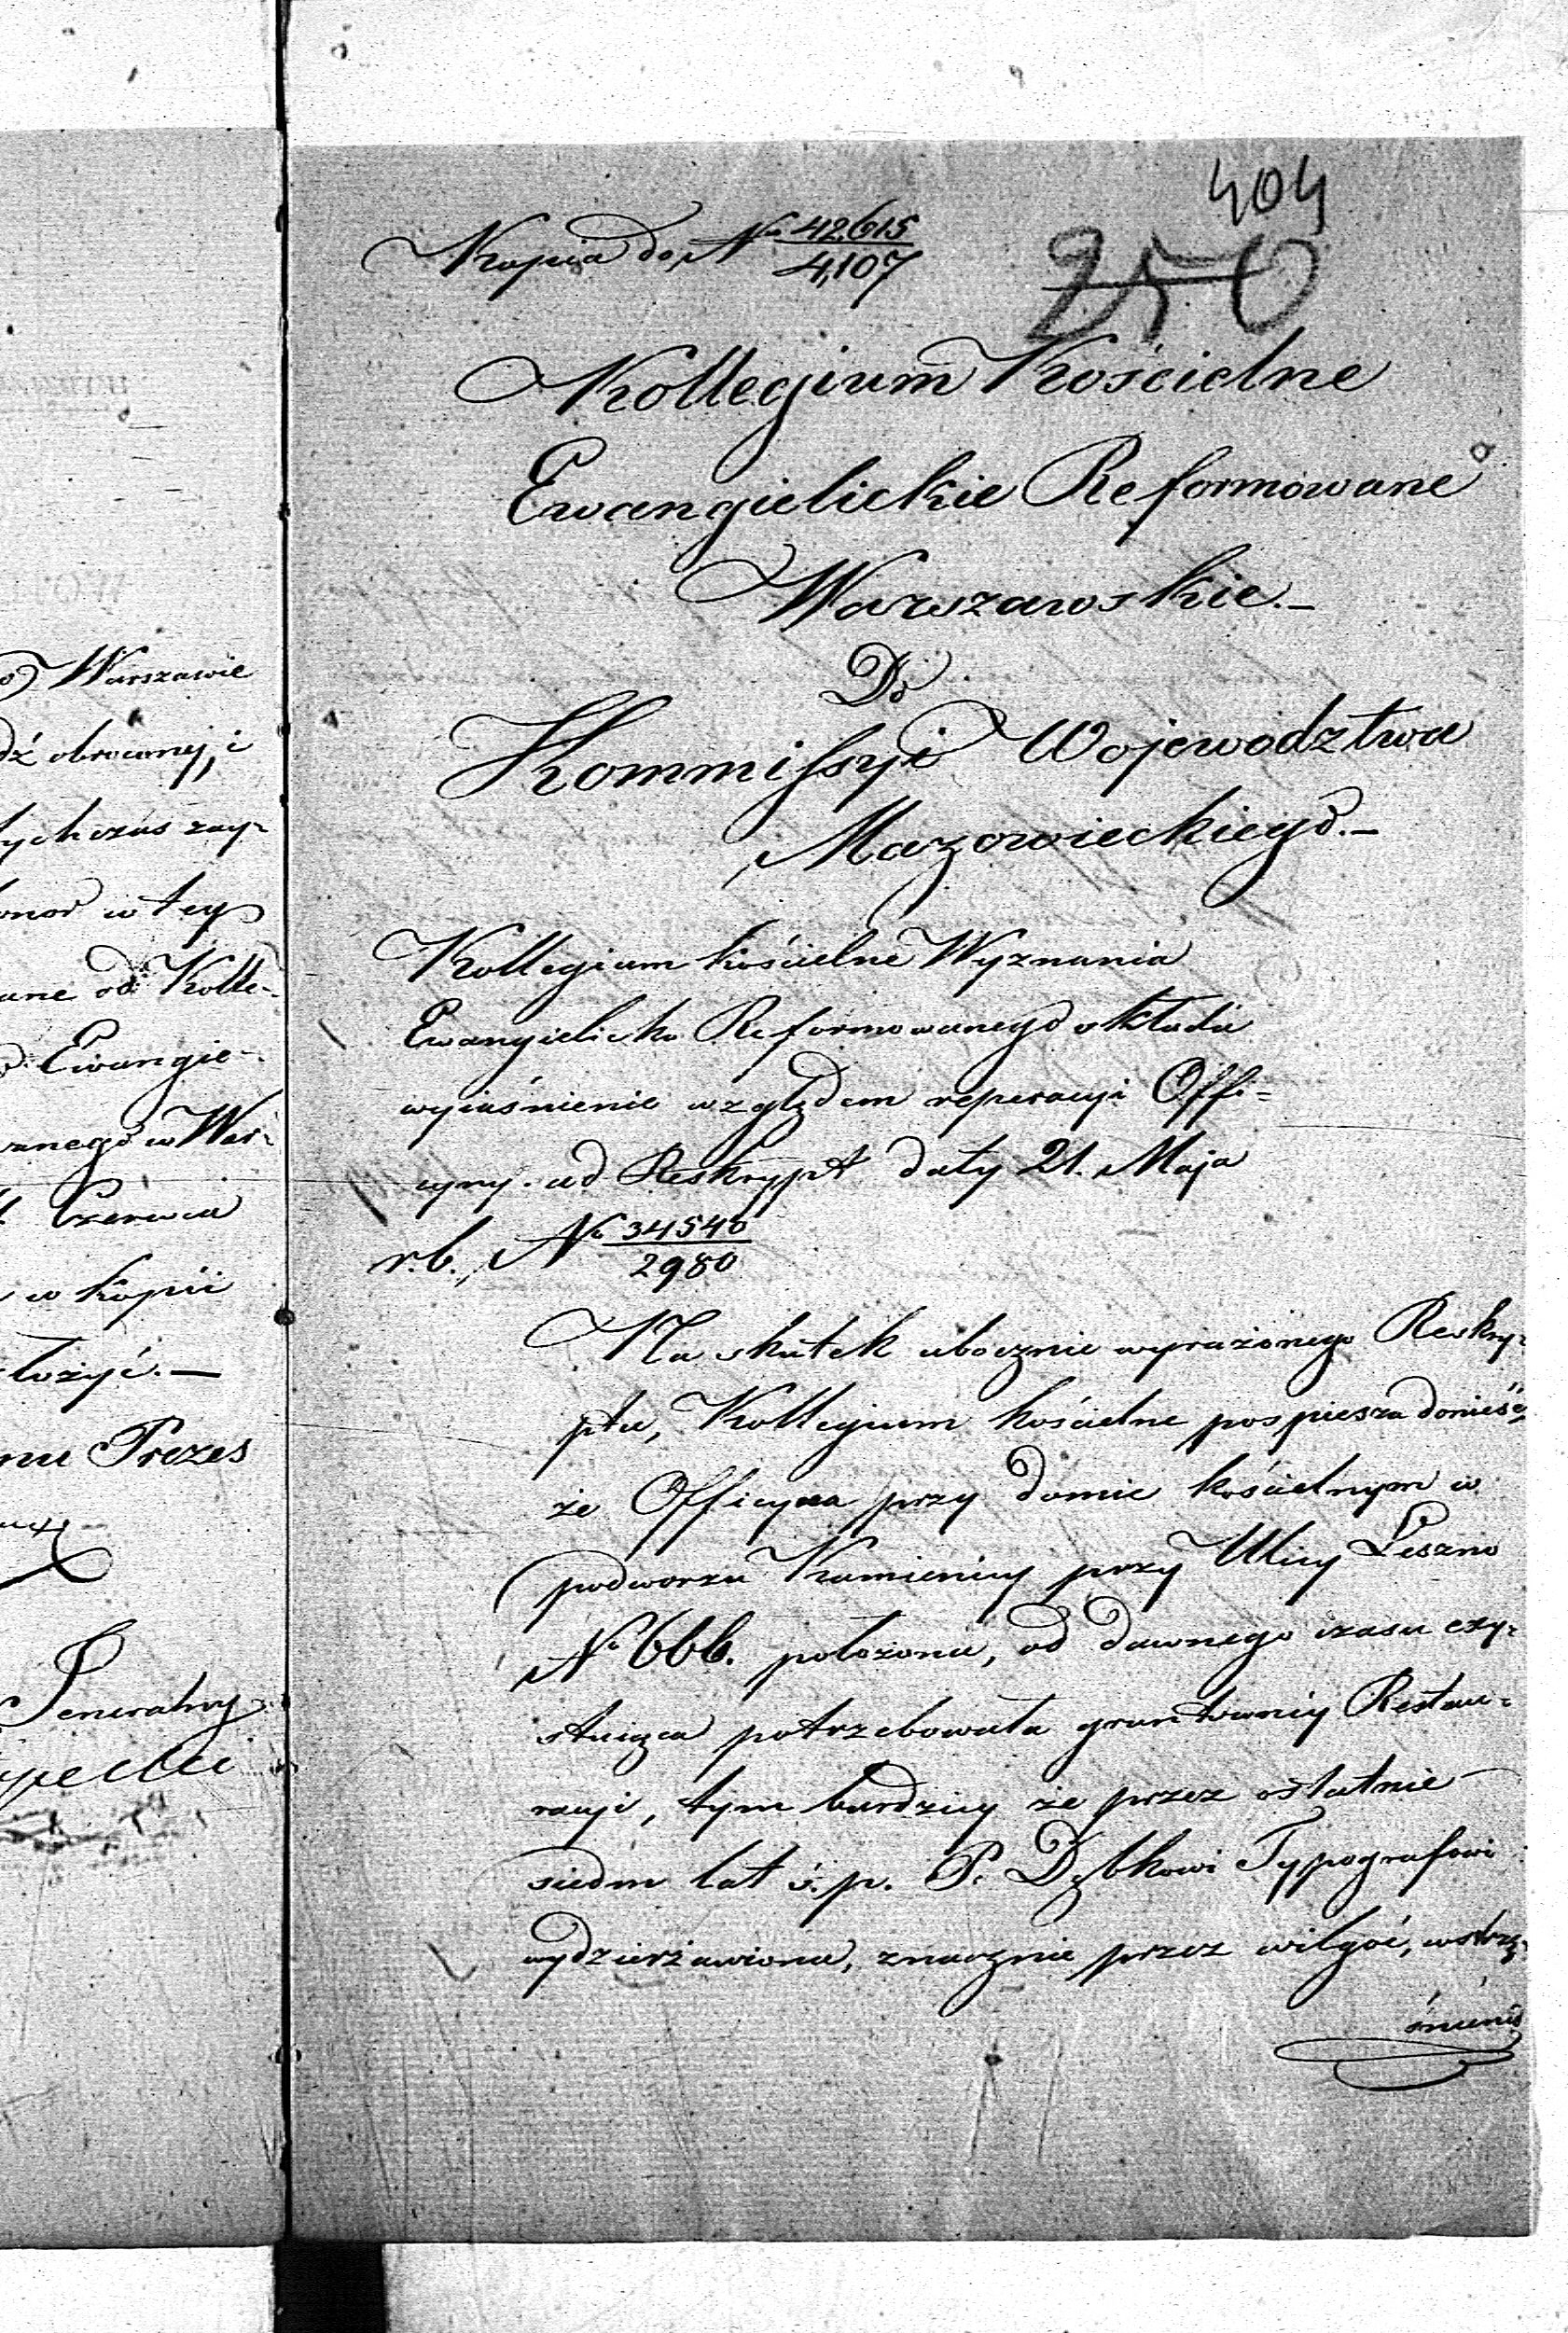 Warszawie
dź obrócony, i
tychczas zay-
w tey
ane od Kolle-
Ewangie-
znego w War-
Czerwca
w kopii
łożyć.—
Prezes
Jeneralny
404
250
Kopia do No 42615/4,107
Kollegium Kościelne
Ewangielickie Reformowane
Warszawskie.—
Do
Kommissyi Województwa
Mazowieckiego.—
Kollegium kościelne Wyznania
Ewangielicko Reformowanego składa
wyiaśnienie względem reperacyi Offi=
cyny. ad Reskrypt daty 21. Maja
r. b. No 34540/2980
Na skutek ubocznie wyrażonego Reskry-
ptu, Kollegium kościelne pospiesza donieść,
że Officyna przy domie kościelnym w
podworzu Kamienicy przy Ulicy Leszno
No 666. położona, od dawnego czasu exy-
stuiąca potrzebowała gruntowney Restau-
racyi, tym bardziey że przez ostatnie
siedm lat ś. p. P. Dąbkowi Typografowi
wydzierżawiona, znacznie przez wilgoć, wstrzą-
śnienia